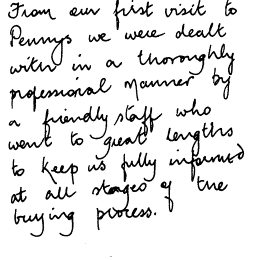 From our first visit to
Pennys we were dealt
with in a thoroughly
professional manner by
a friendly staff who
went to great lengths
to keep us fully informed
at all stages of the
buying process.